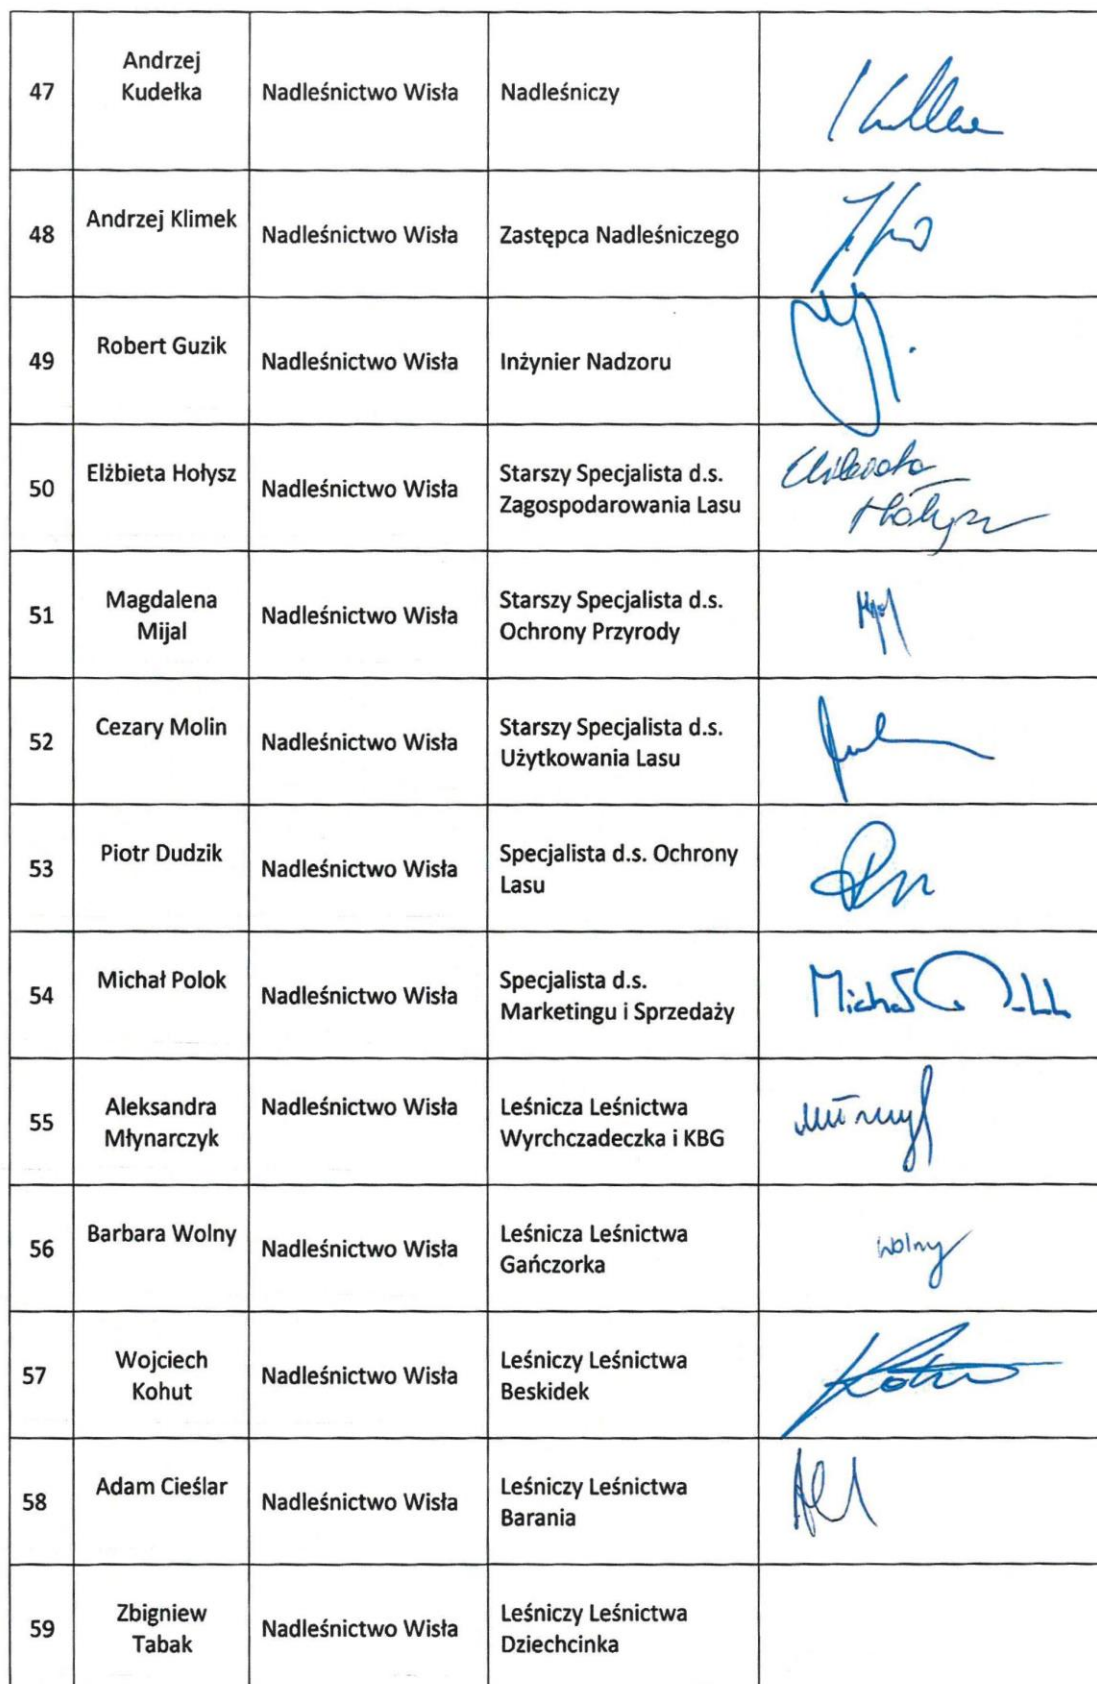 47 Andrzej Kudełka Nadleśnictwo Wisła Nadleśniczy
48 Andrzej Klimek Nadleśnictwo Wisła Zastępca Nadleśniczego
49 Robert Guzik Nadleśnictwo Wisła Inżynier Nadzoru
50 Elżbieta Hołysz Nadleśnictwo Wisła Starszy Specjalista d.s.
Zagospodarowania Lasu
Hołysz
51 Magdalena Mijal Nadleśnictwo Wisła Starszy Specjalista d.s.
Ochrony Przyrody
52 Cezary Molin Nadleśnictwo Wisła Starszy Specjalista d.s.
Użytkowania Lasu
53 Piotr Dudzik Nadleśnictwo Wisła Specjalista d.s. Ochrony
Lasu
54 Michał Polok Nadleśnictwo Wisła Specjalista d.s.
Marketingu i Sprzedaży
Michał
55 Aleksandra Młynarczyk Nadleśnictwo Wisła Leśnicza Leśnictwa
Wyrchczadeczka i KBG
56 Barbara Wolny Nadleśnictwo Wisła Leśnicza Leśnictwa
Gańczorka
Wolny
57 Wojciech Kohut Nadleśnictwo Wisła Leśniczy Leśnictwa
Beskidek
58 Adam Cieślar Nadleśnictwo Wisła Leśniczy Leśnictwa
Barania
59 Zbigniew Tabak Nadleśnictwo Wisła Leśniczy Leśnictwa
Dziechcinka